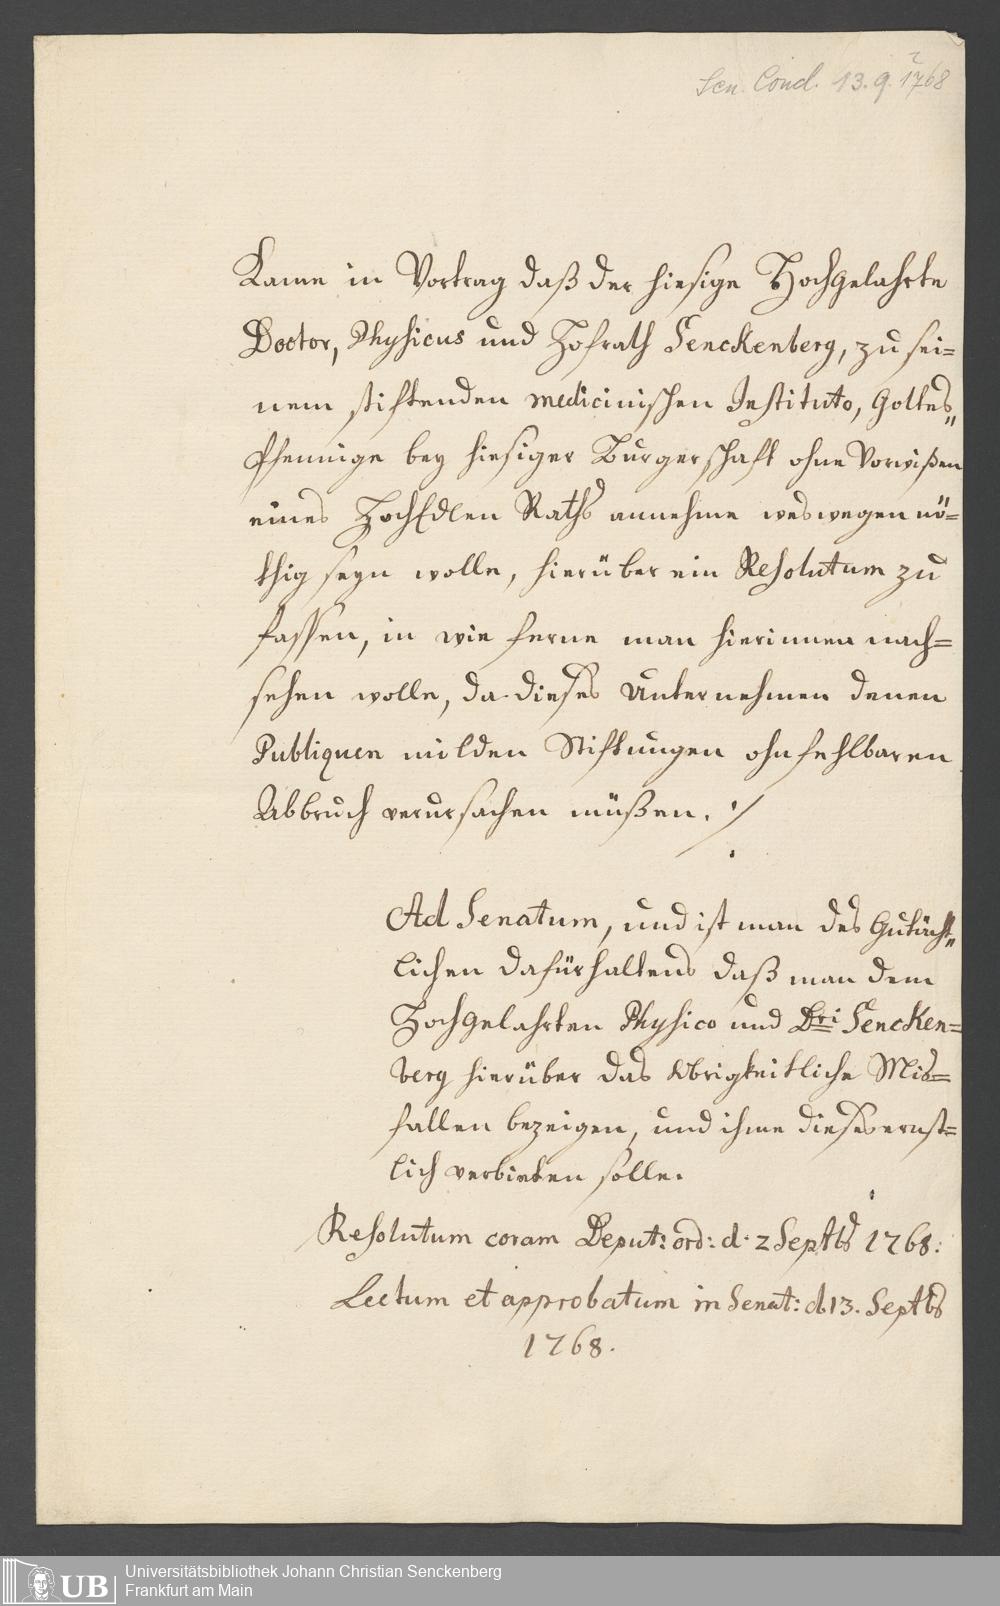 Sen. Concl. 13. 9. 1768
Kame in Vortrag daß der hiesige Hochgelahrte
Doctor, Physicus und Hofrath Senckenberg, zu sei=
nem stiftenden medicinischen Instituto, Gottes„
Pfennige bey hiesiger Burgerschaft ohne Vorwißen
eines HochEdlen Raths annehme weswegen nö=
thig seyn wolle, hierüber ein Resolutum zu
fassen, in wie ferne man hierinnen nach=
sehen wolle, da dieses Unternehmen denen
Publiquen milden Stiftungen ohnfehlbaren
Abbruch verursachen müßen. ./
Ad Senatum, und ist man des Gutächt„
lichen dafürhaltens daß man dem
Hochgelahrten Physico und Dri Sencken=
berg hierüber das Obrigkeitliche Mis=
fallen bezeigen, und ihme dieses ernst=
lich verbieten solle.
Resolutum coram Deput: ord: d. 2 Septbs 1768:
Lectum et approbatum in Senat: d. 13. Septbs
1768.
UB Universitätsbibliothek Johann Christian Senckenberg
Frankfurt am Main